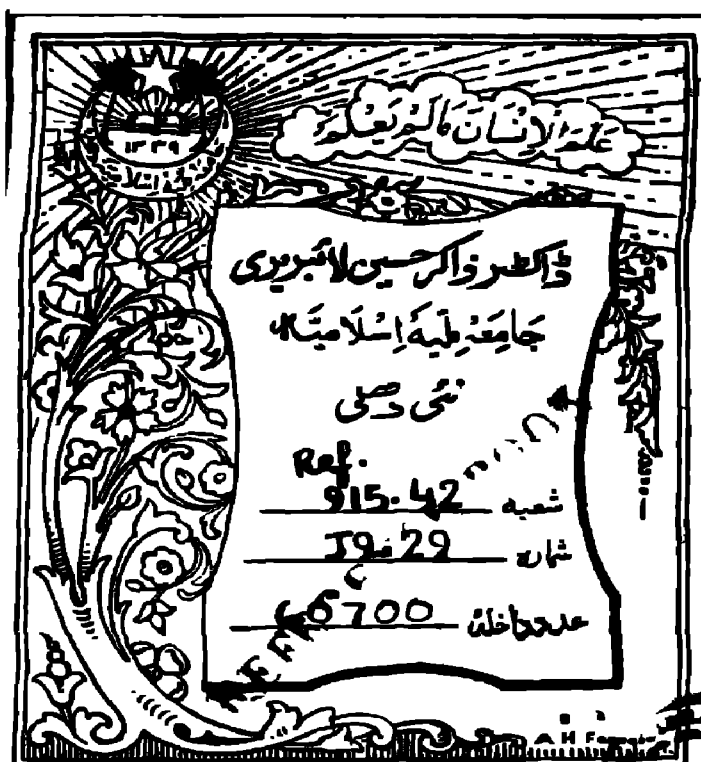 عَلَّمَ الْاِنْسَانَ مَا لَمْ يَعْلَمْ
۱۳۳۹
ڈاکٹر ذاکر حسین لائبریری
جَامِعَہ مِلّیَہ اِسْلَامِیَّہ
نئی دھلی
Ref.
شعبہ 915.42
شمارہ
عدد داخلہ
A H